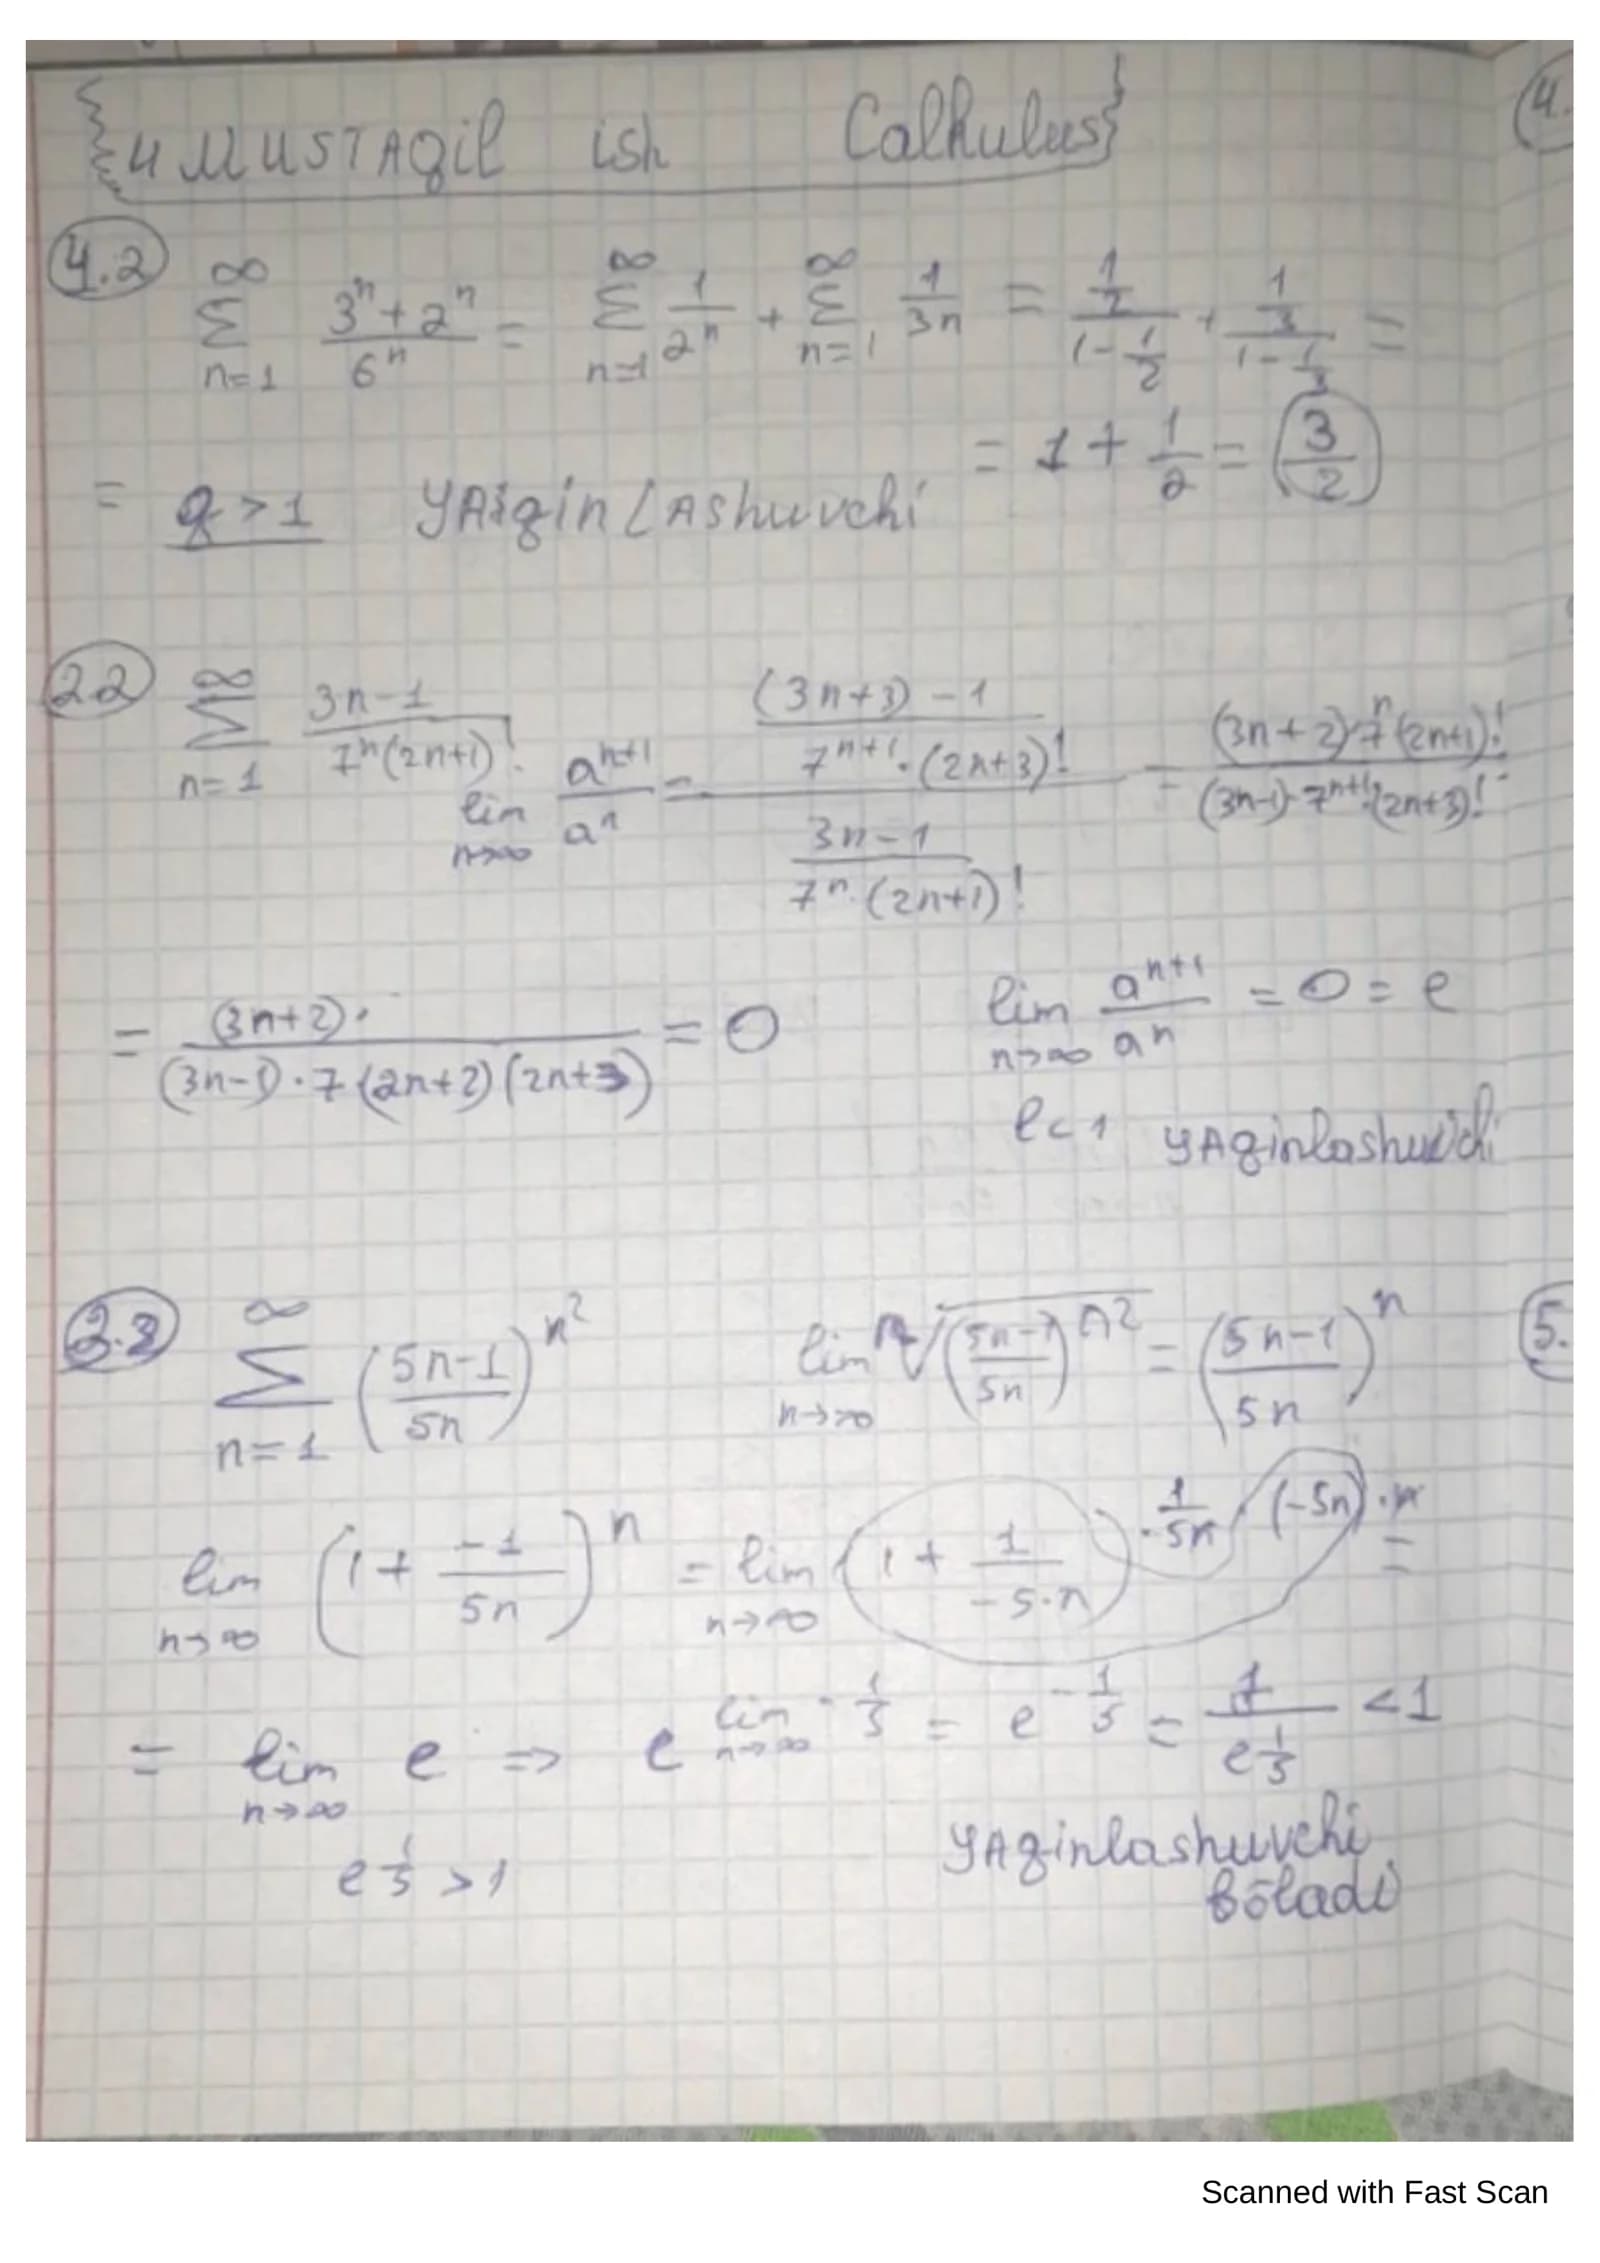 4 MUSTAQil ish Calkulus
4.2 ∞ ∑ n=1 (3^n+2^n)/6^n = ∞ ∑ n=1 1/2^n + ∞ ∑ n=1 1/3n = (1/2)/(1-1/2) + (1/3)/(1-1/3) =
= 1 + 1/2 = 3/2
= q > 1 YAIqinLAShuvchi
2.2 ∞ ∑ n=1 (3n-1)/(7^n(2n+1)!) lim n→∞ a^{n+1}/a^n = (((3n+3)-1)/(7^{n+1}·(2n+3)!))/((3n-1)/(7^n·(2n+1)!)) = ((3n+2)·7^n(2n+1)!)/((3n-1)·7^{n+1}(2n+3)!)
= (3n+2)·/((3n-1)·7(2n+2)(2n+3)) = 0 lim n→∞ a^{n+1}/a^n = 0 = l
l<1 YAqinlashuvchi
∞ ∑ n=1 ((5n-1)/5n)^{n^2} lim n→∞ n√(((5n-1)/5n)^{n^2}) = ((5n-1)/5n)^n
lim n→∞ (1 + -1/5n)^n = lim n→∞ (1 + 1/(-5·n))^{·1/5n·(-5n)·n} =
= lim n→∞ e => e^{lim n→∞ -1/5} = e^{-1/5} = 1/e^{1/5} <1
e^{1/5} > 1 YAqinlashuvchi
bōladi
4.
5.
Scanned with Fast Scan